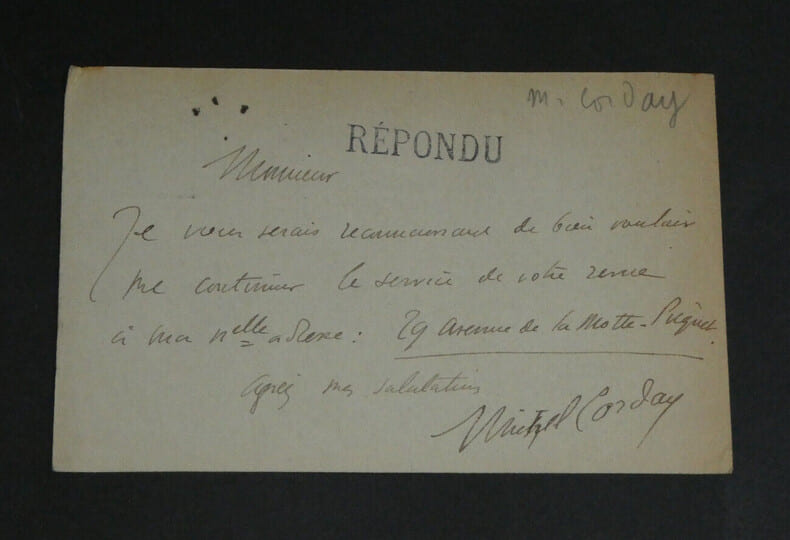 M. Corday
RÉPONDU
Monsieur
Je vous serais reconnaissant de bien vouloir
me continuer le service de votre revue
à ma nelle adresse : 29 avenue de la Motte-Picquet.
agréez mes salutations
Michel Corday